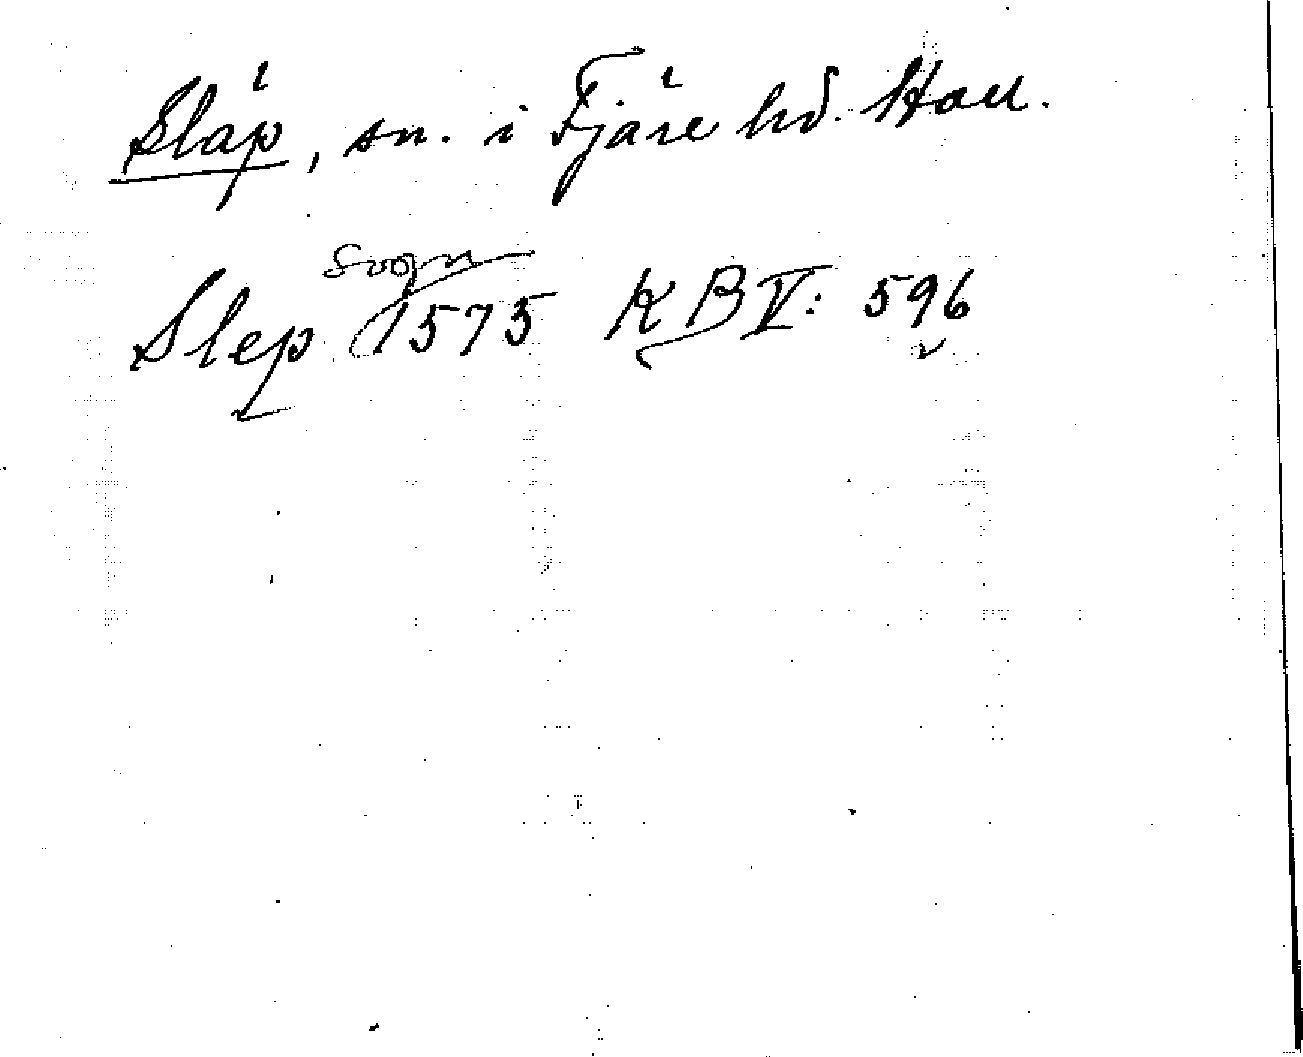 Släp, sn. i Fjäre hd. Hall.
Slep sogn 1575 KBV: 596